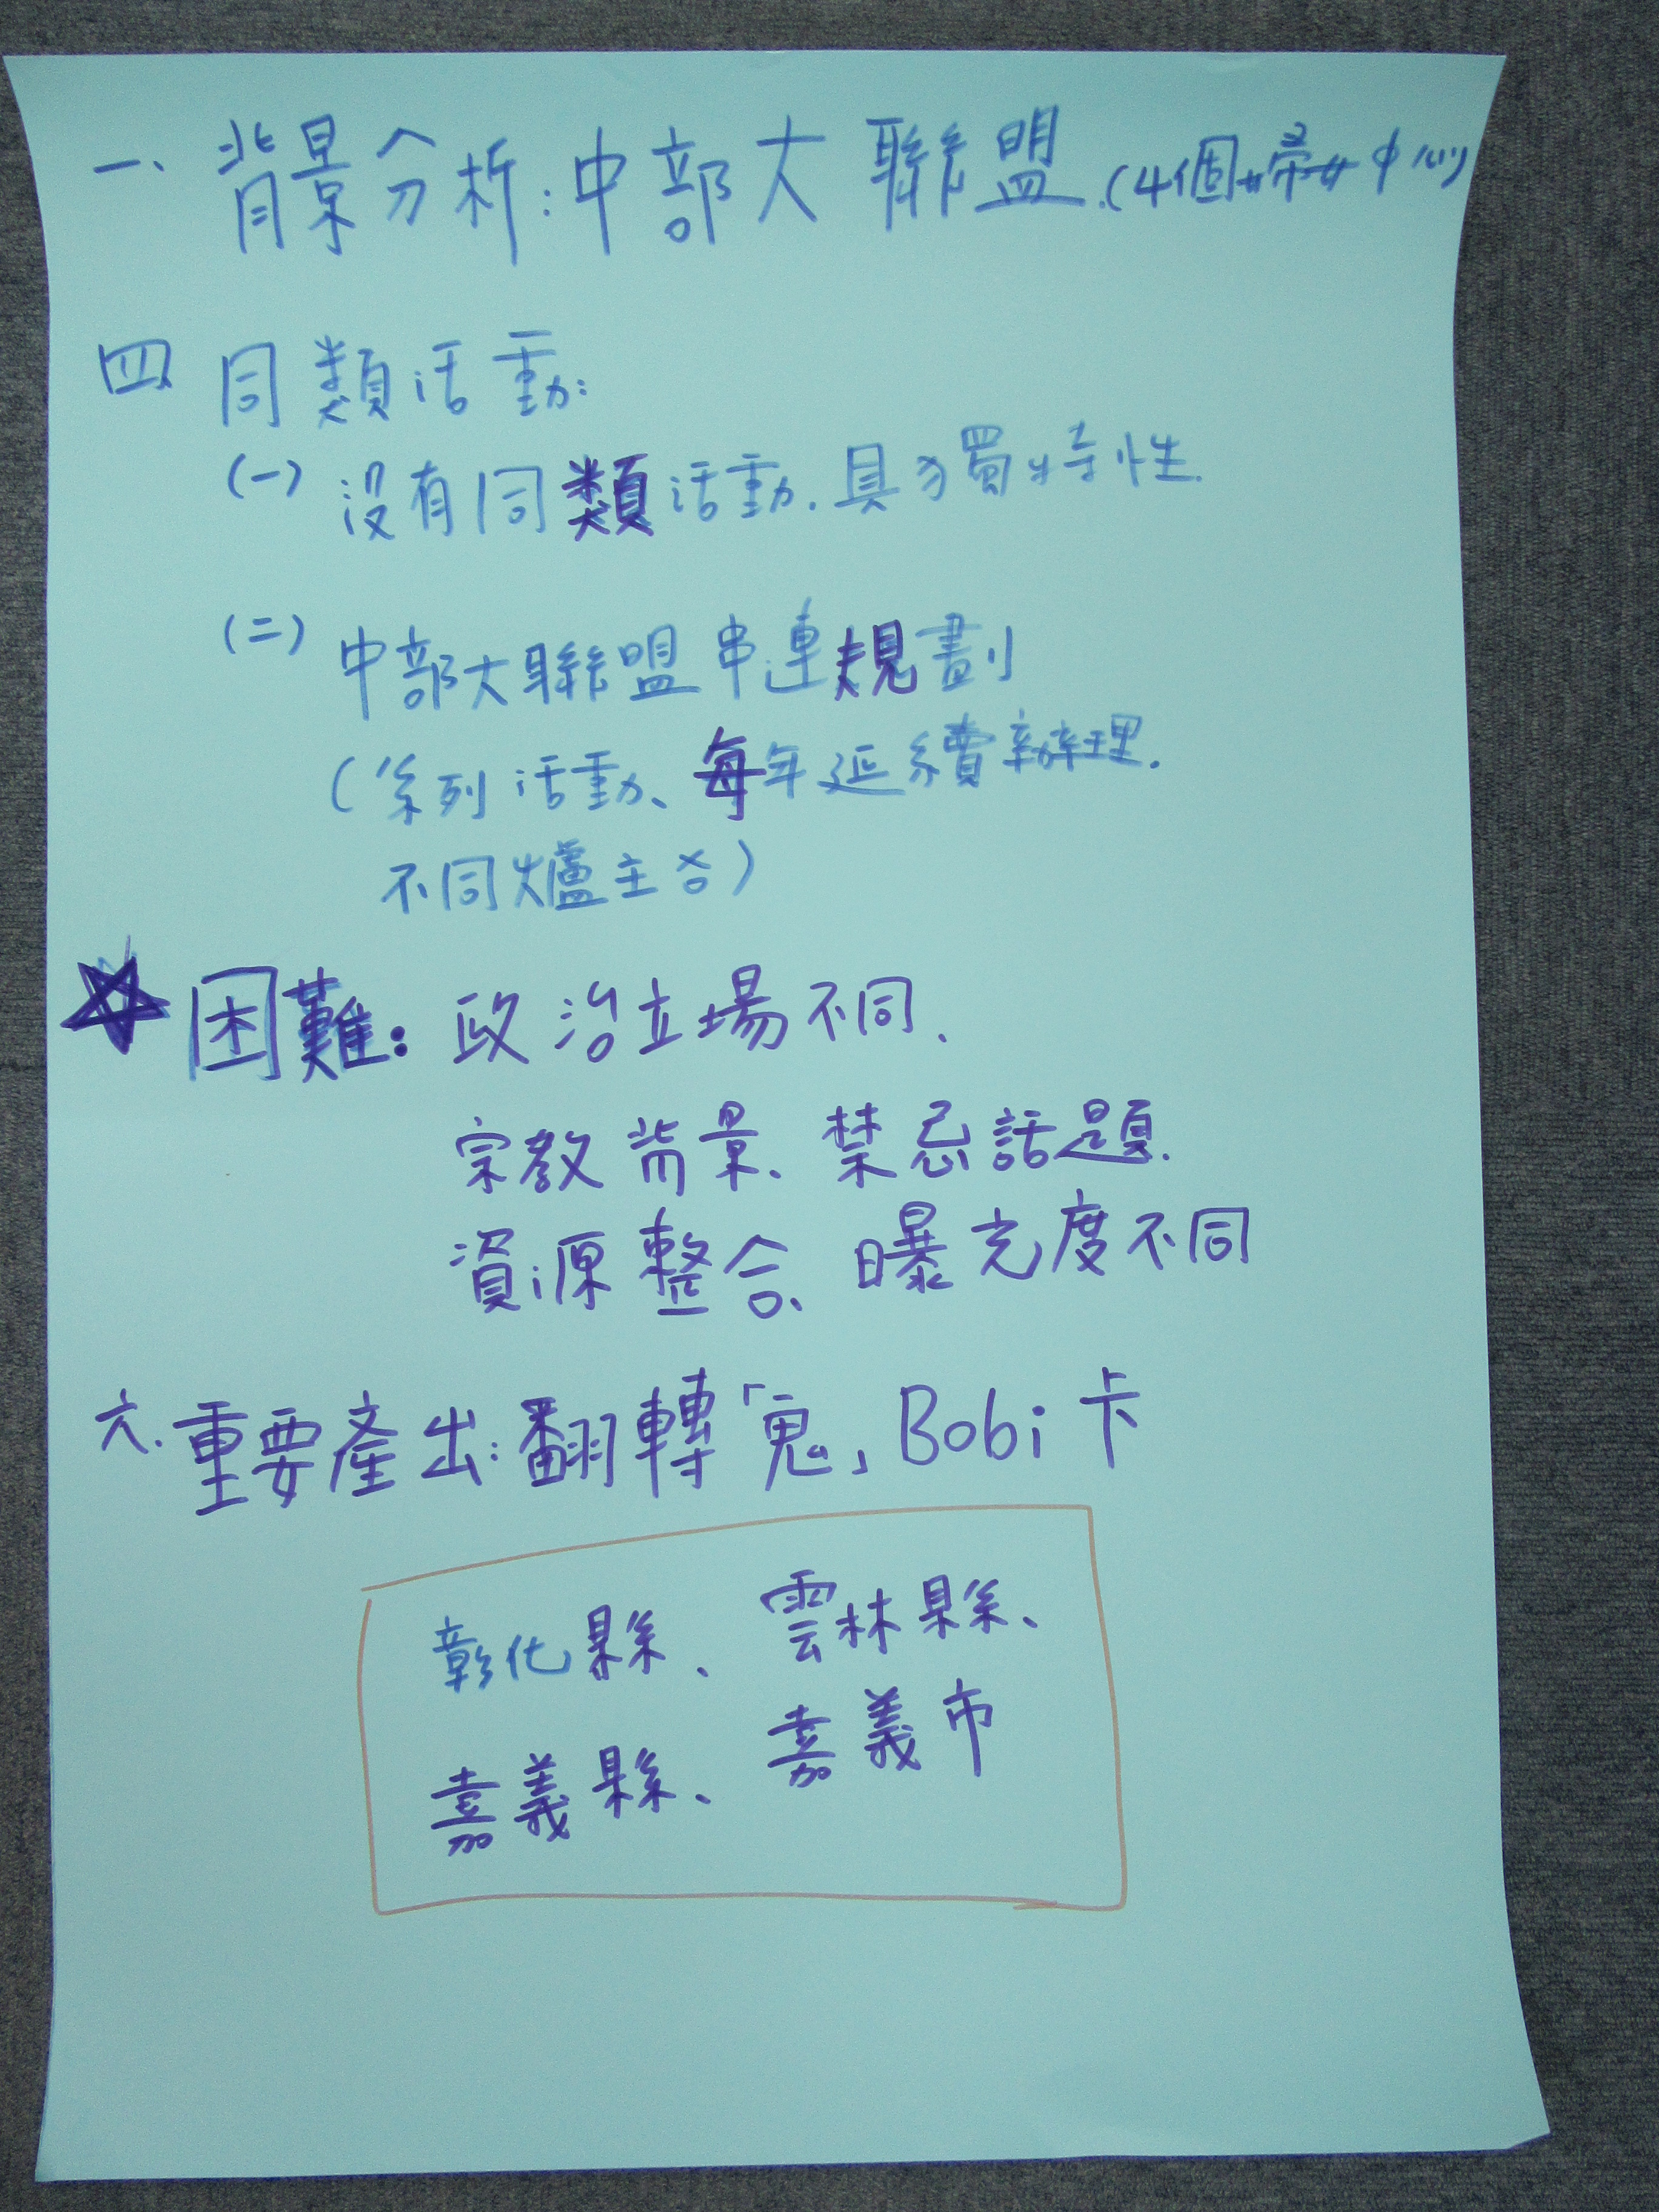 一、背景分析:中部大聯盟.(4個婦女中心)
四、同類活動:
(一) 沒有同類活動.具獨特性.
(二) 中部大聯盟串連規劃
(系列活動、每年延續辦理.
不同爐主名)
☆困難:政治立場不同、
宗教背景、禁忌話題.
資源整合、曝光度不同
六.重要產出:翻轉「鬼」Bobi卡
彰化縣、雲林縣、
嘉義縣、嘉義市